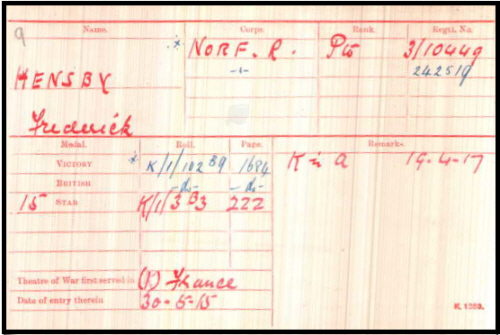 9
Name. Corps. Rank. Regtl. No.
* NORF. R. Pte 3/10449
HENSBY -"- 242519
Frederick
Medal. Roll. Page. Remarks.
VICTORY * K/1/102 B9 1684 K in A 19-4-17
BRITISH -do- -do-
15 STAR K/1/3 B3 222
Theatre of War first served in (1) France
Date of entry therein 30-5-15
K. 1380.